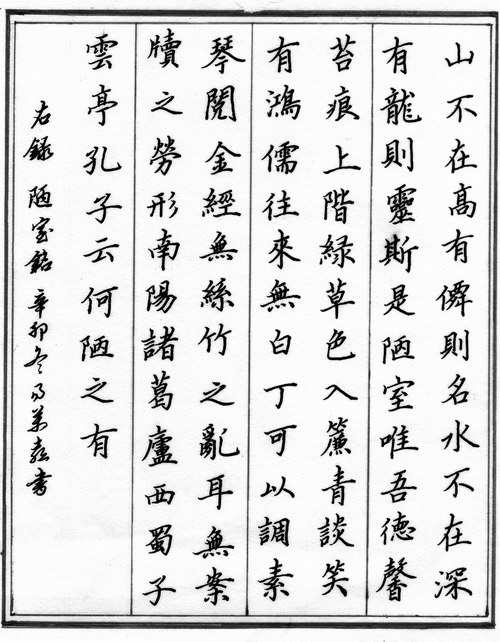 山不在高有僊則名水不在深
有龍則靈斯是陋室唯吾德馨
苔痕上階緑草色入簾青談笑
有鴻儒往來無白丁可以調素
琴閱金經無絲竹之亂耳無案
牘之勞形南陽諸葛廬西蜀子
雲亭孔子云何陋之有
右録 陋室銘 辛卯冬月 書